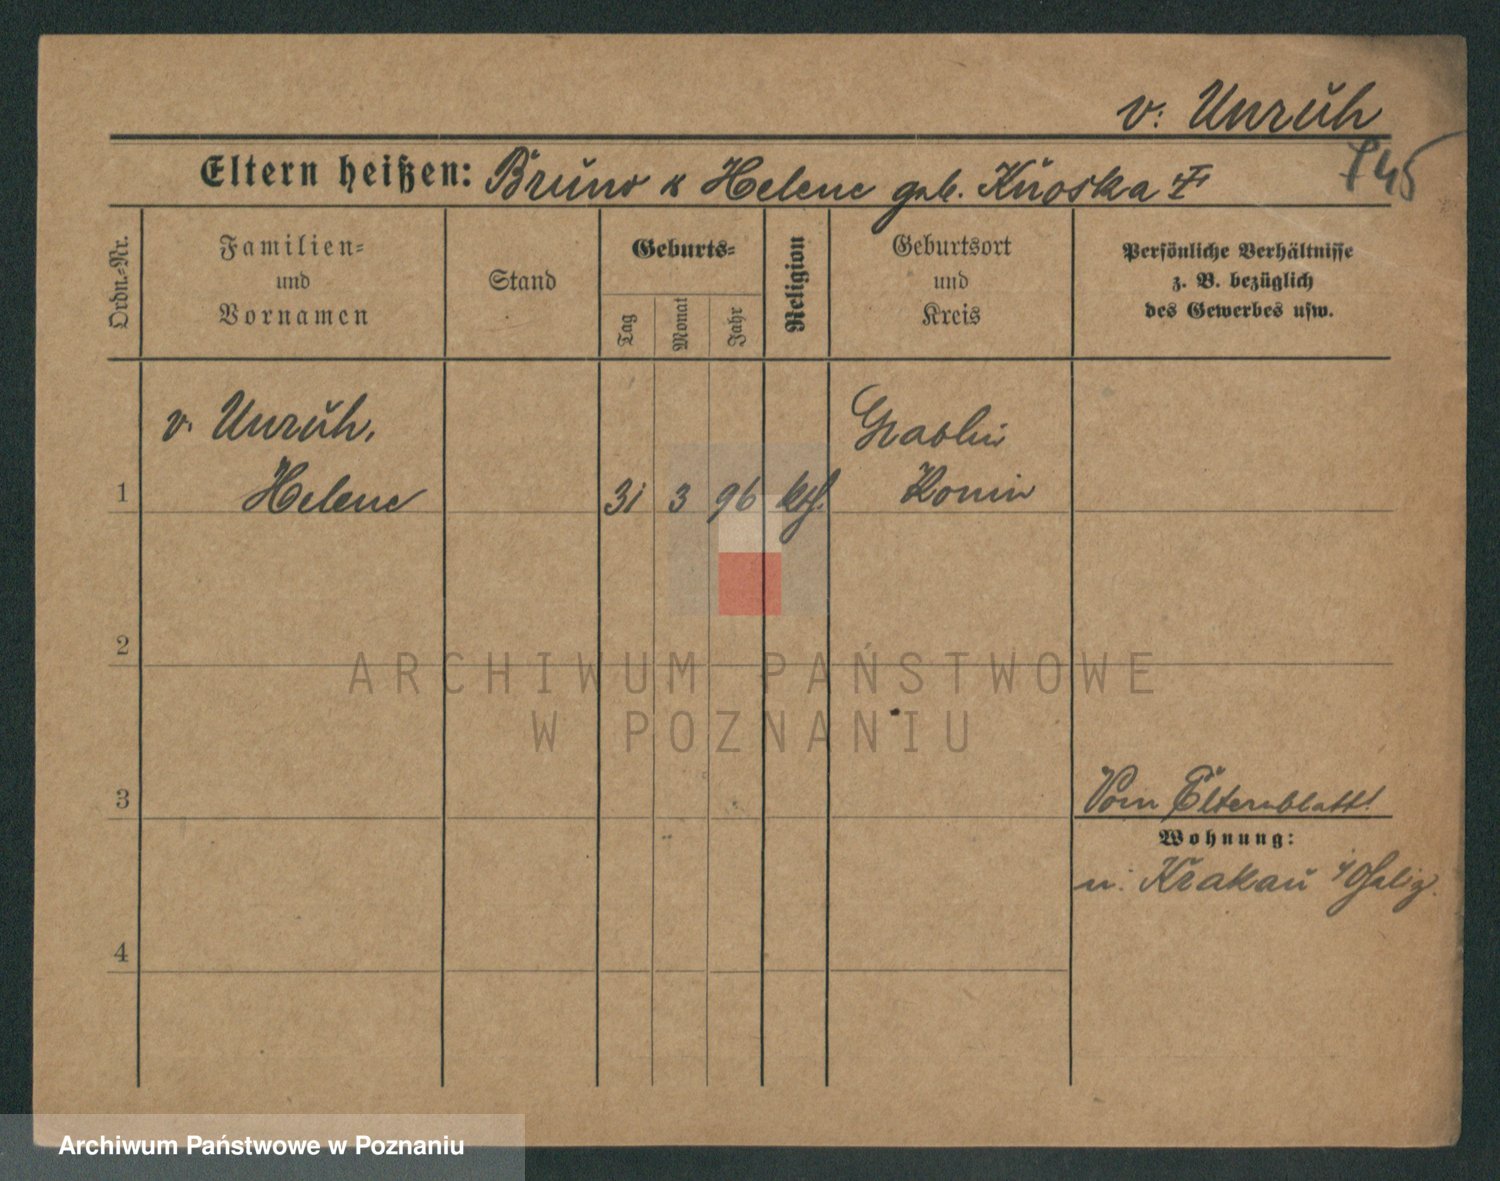 v. Unruh
745
Eltern heißen: Bruno & Helene geb. Knoska
Ordn.-Nr.
Familien-
und
Vornamen
Stand
Geburts-
Tag
Monat
Jahr
Religion
Geburtsort
und
Kreis
Persönliche Verhältnisse
z. B. bezüglich
des Gewerbes usw.
v. Unruh,
Helene
1
31 3 96 kth.
Konin
2
3
4
Vom Elternblatt!
Wohnung:
n. Krakau i/Galiz.
ARCHIWUM PAŃSTWOWE
W POZNANIU
Archiwum Państwowe w Poznaniu